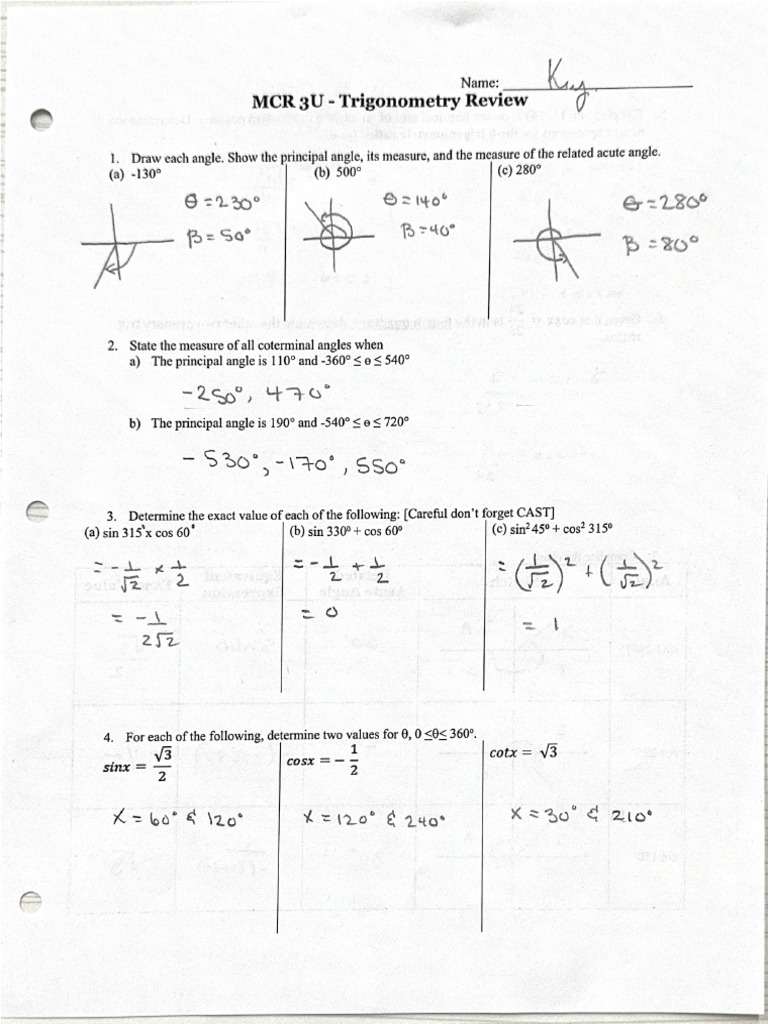 Name: Key
MCR 3U - Trigonometry Review
1. Draw each angle. Show the principal angle, its measure, and the measure of the related acute angle.
(a) -130° (b) 500° (c) 280°
θ = 230° θ = 140° θ = 280°
β = 50° β = 40° β = 80°
2. State the measure of all coterminal angles when
a) The principal angle is 110° and -360° ≤ θ ≤ 540°
-250°, 470°
b) The principal angle is 190° and -540° ≤ θ ≤ 720°
-530°, -170°, 550°
3. Determine the exact value of each of the following: [Careful don't forget CAST]
(a) sin 315° x cos 60° (b) sin 330° + cos 60° (c) sin² 45° + cos² 315°
= -1/√2 × 1/2 = -1/2 + 1/2 = (1/√2)² + (1/√2)²
= -1/2√2 = 0 = 1
4. For each of the following, determine two values for θ, 0 ≤θ≤ 360°.
sinx = √3/2 cosx = -1/2 cotx = √3
x = 60° & 120° x = 120° & 240° x = 30° & 210°